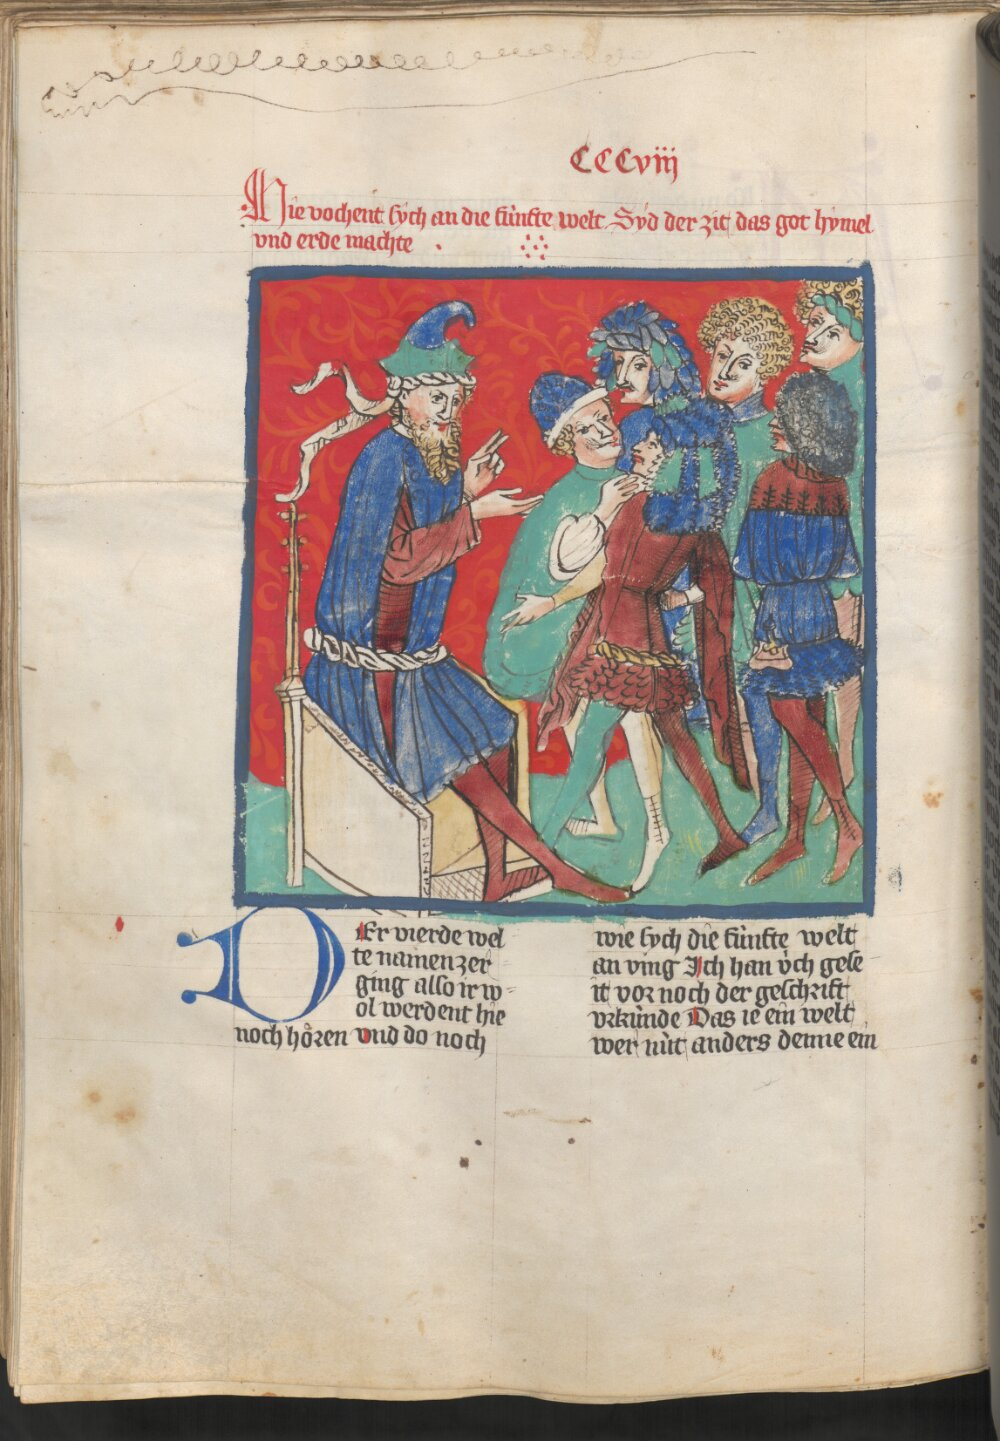 CCCviii
Hie vochent sych an die fúnfte welt Syd der zit das got hymel
vnd erde machte
DEr vierde wel
te namen zer
ging also ir w
ol werdent hie
noch hoͤren vnd do noch
wie sych die fúnfte welt
an ving Ich han vͦch gese
it vor noch der geschrift
vrkúnde Das ie ein welt
wer nút anders denne ein